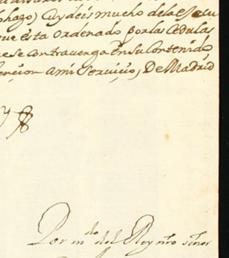 phazo) Cuydeis mucho dela execu
que esta ordenado por las Cedulas
se contravenga En su Contenido
ami Servicio, De Madrid
Por mdo del Rey nro señor